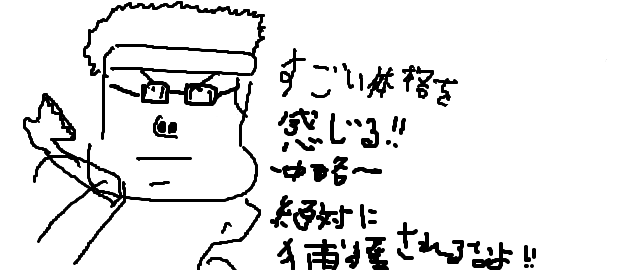 すごい体格を
感じる!!
〜中略〜
絶対に
捕獲されるなよ!!